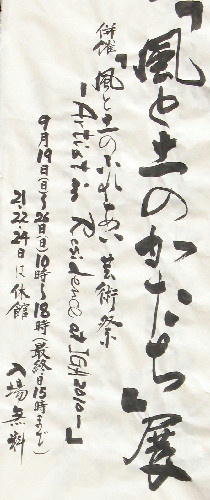 「風と土のかたち」展
併催「風と土のふれあい芸術祭
-Artist in Residence at 2010-」
9月19日(日)〜26日(日)10時〜18時(最終日15時まで)
21・22・24日は休館
入場無料